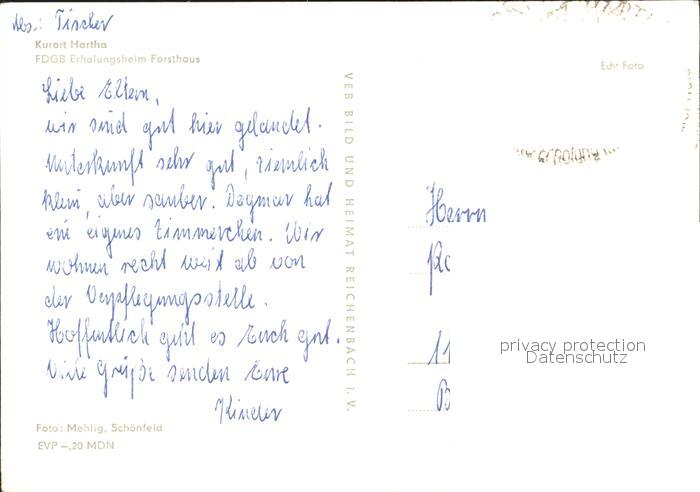 Abs.: Tischer
Kurort Hartha
FDGB Erholungsheim Forsthaus
Echt Foto
Liebe Eltern,
wir sind gut hier gelandet.
Unterkunft sehr gut, ziemlich
klein, aber sauber. Dagmar hat
ein eigenes Zimmerchen. Wir
wohnen recht weit ab von
der Verpflegungsstelle.
Hoffentlich geht es Euch gut.
Viele Grüße senden Eure
Kinder
VEB BILD UND HEIMAT REICHENBACH I. V.
Herrn
11
privacy protection
Datenschutz
Foto: Mehlig, Schönfeld
EVP –,20 MDN